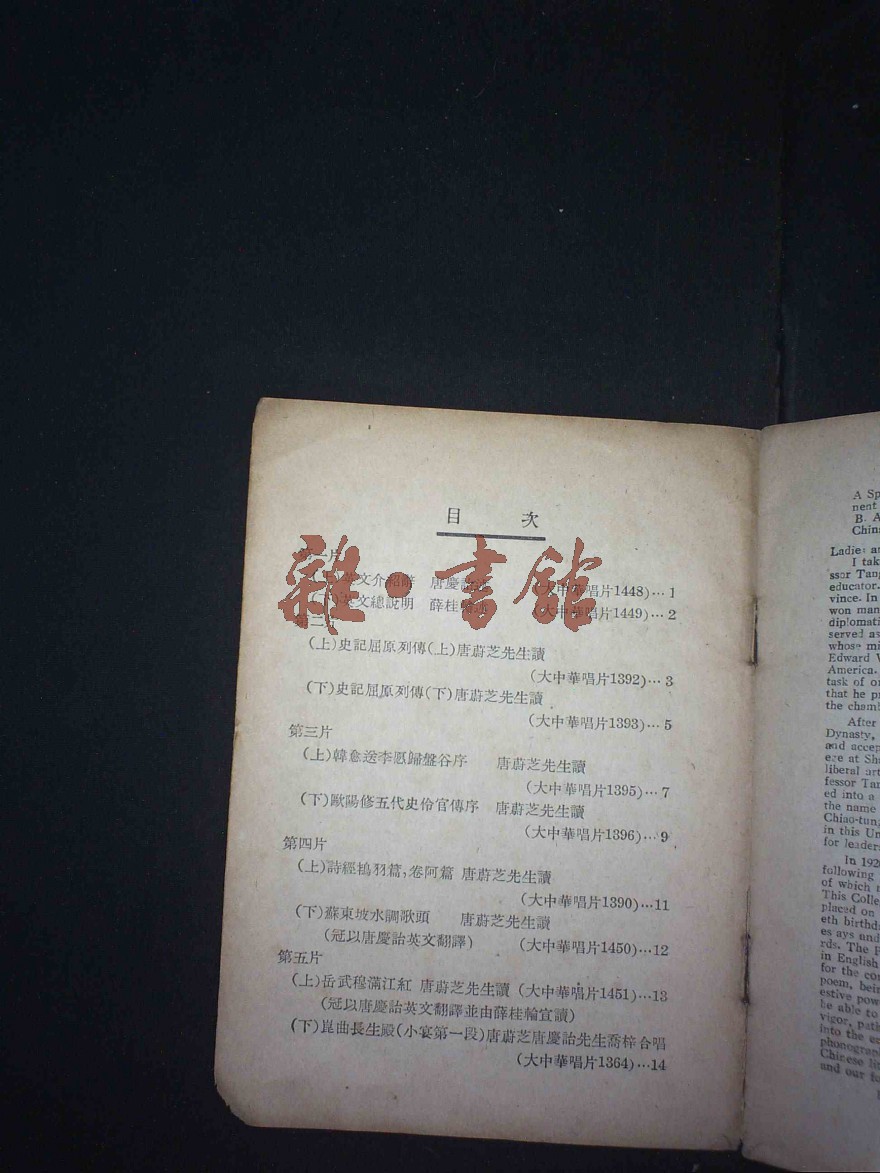 目 次
第一片
(上)英文介紹辭 唐慶詒述
(大中華唱片1448)…1
(下)英文總說明 薛桂輪述
(大中華唱片1449)…2
第二片
(上)史記屈原列傳(上)唐蔚芝先生讀
(大中華唱片1392)…3
(下)史記屈原列傳(下)唐蔚芝先生讀
(大中華唱片1393)…5
第三片
(上)韓愈送李愿歸盤谷序 唐蔚芝先生讀
(大中華唱片1395)…7
(下)歐陽修五代史伶官傳序 唐蔚芝先生讀
(大中華唱片1396)…9
第四片
(上)詩經鴇羽篇,卷阿篇 唐蔚芝先生讀
(大中華唱片1390)…11
(下)蘇東坡水調歌頭 唐蔚芝先生讀
(冠以唐慶詒英文翻譯) (大中華唱片1450)…12
第五片
(上)岳武穆滿江紅 唐蔚芝先生讀 (大中華唱片1451)…13
(冠以唐慶詒英文翻譯並由薛桂輪宣讀)
(下)崑曲長生殿(小宴第一段)唐蔚芝唐慶詒先生喬梓合唱
(大中華唱片1364)…14
雜·書館
A Sp
nent
B. A
Chin
Ladies an
I tak
ssor Tang
educator.
vince. In
won man
diplomati
served as
whose mi
Edward V
America.
task of o
that he p
the cham
After
Dynasty,
and accep
ere at Sha
liberal art
fessor Tan
ed into a
the name
Chiao-tun
in this Un
for leader
In 192
following
of which
This Colle
placed on
eth birthd
es ays and
rds. The F
in English
for the co
poem, bein
estive pow
be able to
vigor, path
into the
phonograph
Chinese li
and our fu